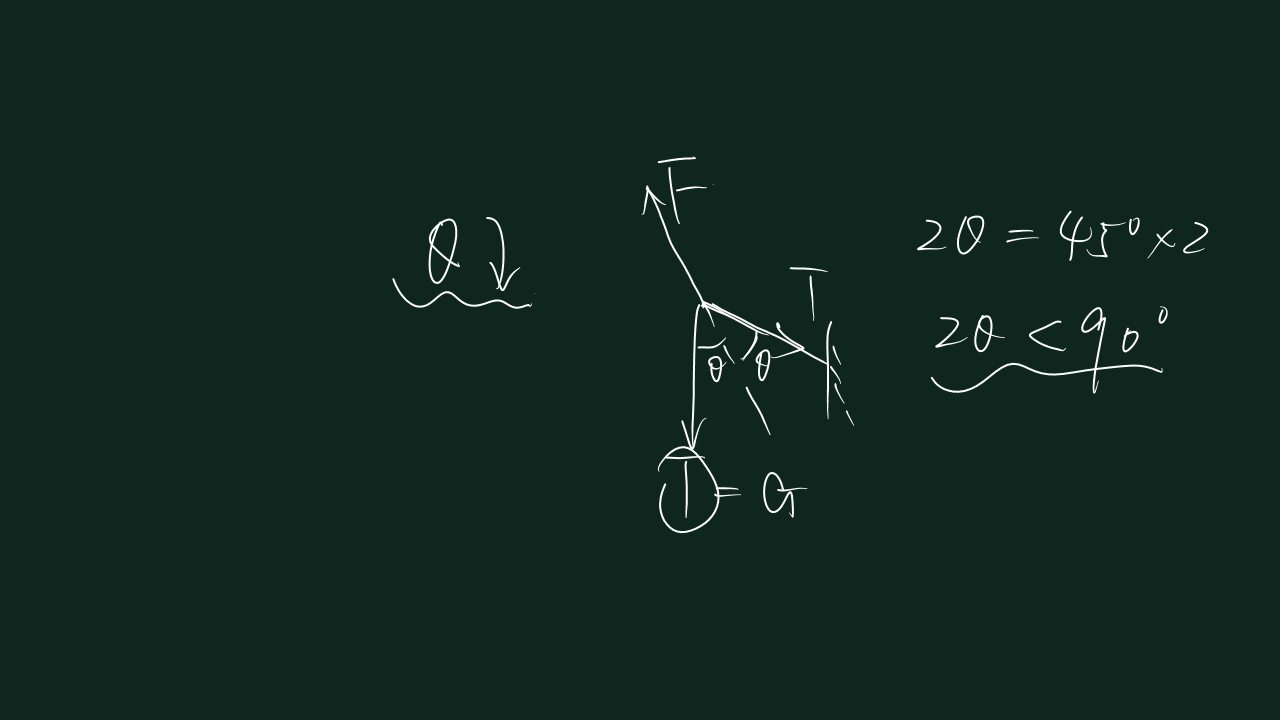 θ↓
F
T
θ θ
T = G
2θ = 45° × 2
2θ < 90°